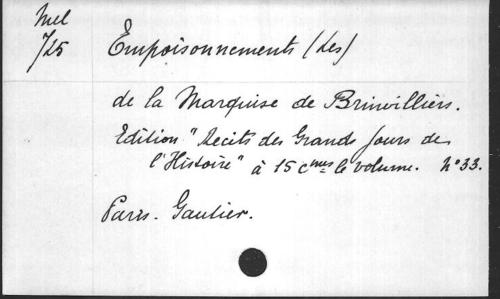 Mel
725
Empoisonnements (Les)
de la Marquise de Brinvilliers.
Edition "Récits des Grands Jours de
l'Histoire" à 15 cmes le volume. N° 33.
Paris. Gautier.